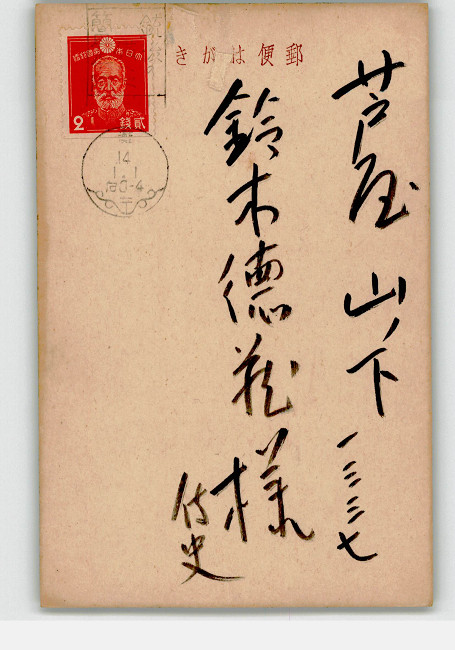 郵便はがき
大日本帝國郵便
2
貳銭
14
1.1
后0-4
芦屋 山ノ下
一三三七
鈴木德蔵様
侍史